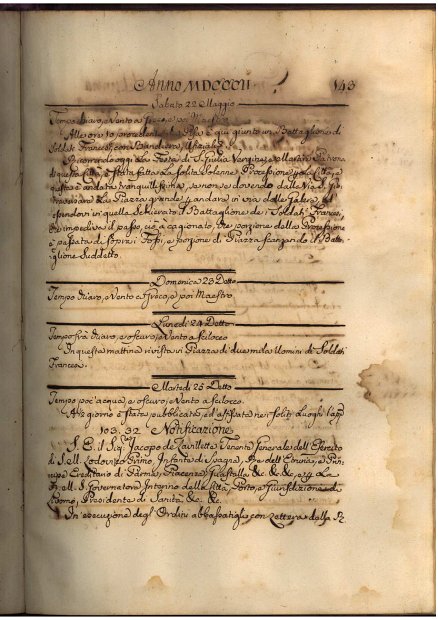 Anno MDCCCII
143
Sabato 22 Maggio
Tempo chiaro, e Vento a Greco, e poi Maestro
Alle ore 10 proveniente da Pisa è qui giunto un Battaglione di
Soldati Francesi, con Bandiera, Ufiziali &c.
Ricorrendo oggi la Festa di S. Giulia Vergine, e Martire Patrona
di questa Città, è stata fatta la solita Solenne Processione per la Città, e
questa è andata tranquillissima, se non che dovendo dalla Via S. Gio.
traversare la Piazza grande, e andare in via delle Galere, ed
essendovi in quella Schierato il Battaglione de' Soldati Francesi,
che impediva il passo, ciò à cagionato, che porzione della Processione
è passata di sopra i Fossi, e porzione di Piazza scanzando il Batta-
glione Suddetto.
Domenica 23 Detto
Tempo chiaro, e Vento a Greco, e poi Maestro
Lunedì 24 Detto
Tempo frà chiaro, e oscuro, e Vento a scilocco
In questa mattina rivista in Piazza di due mila Uomini di Soldati
Francesi.
Martedì 25 Detto
Tempo poc'acqua, e oscuro, e Vento a scilocco.
giorno è stata pubblicata, ed affissata nei soliti Luoghi l'app.
103. 32 Notificazione
S. E. il Sig. Jacopo de Lavillette Tenente Generale dell'Esercito
di S. M. Lodovico Primo, Infante di Spagna, Re dell'Etruria, e Prin-
cipe Ereditario di Parma, Piacenza, Guastalla &c. &c. &c. e per la
M. S. Governatore Interino della Città, Porto, e Giurisdizione di
Livorno, Presidente di Sanità, &c. &c.
In esecuzione degl'Ordini abbassatigli con Lettera della R.